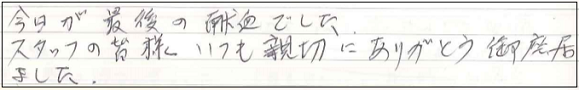 今日が最後の献血でした.
スタッフの皆様 いつも親切にありがとう御座居
ました.